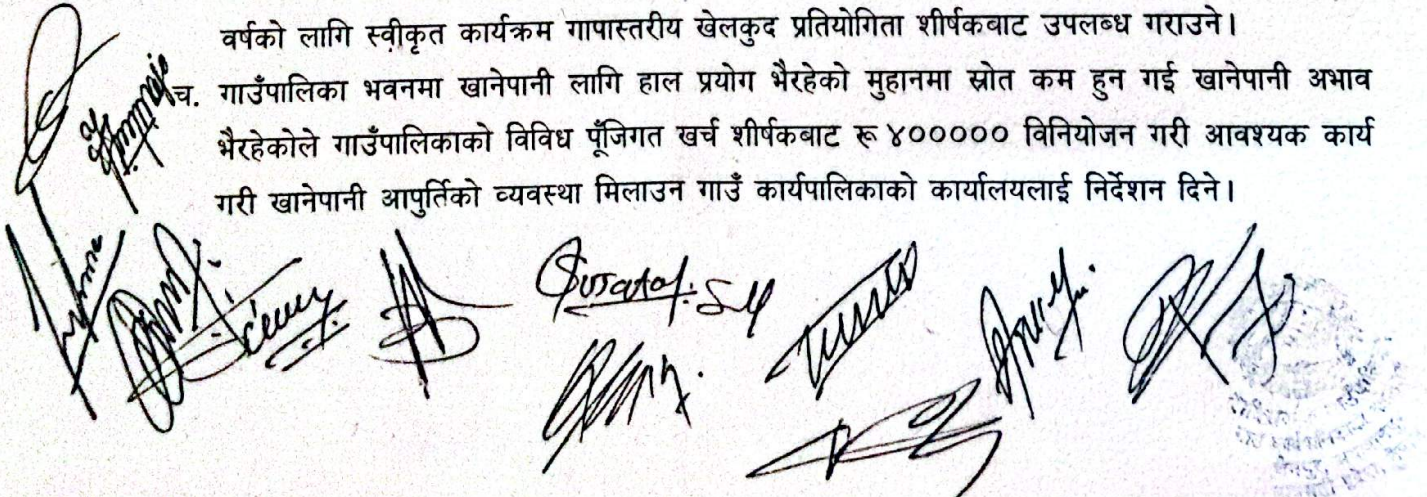 वर्षको लागि स्वीकृत कार्यक्रम गापास्तरीय खेलकुद प्रतियोगिता शीर्षकबाट उपलब्ध गराउने।
च. गाउँपालिका भवनमा खानेपानी लागि हाल प्रयोग भैरहेको मुहानमा स्रोत कम हुन गई खानेपानी अभाव
भैरहेकोले गाउँपालिकाको विविध पूँजिगत खर्च शीर्षकबाट रू ४००००० विनियोजन गरी आवश्यक कार्य
गरी खानेपानी आपुर्तिको व्यवस्था मिलाउन गाउँ कार्यपालिकाको कार्यालयलाई निर्देशन दिने।